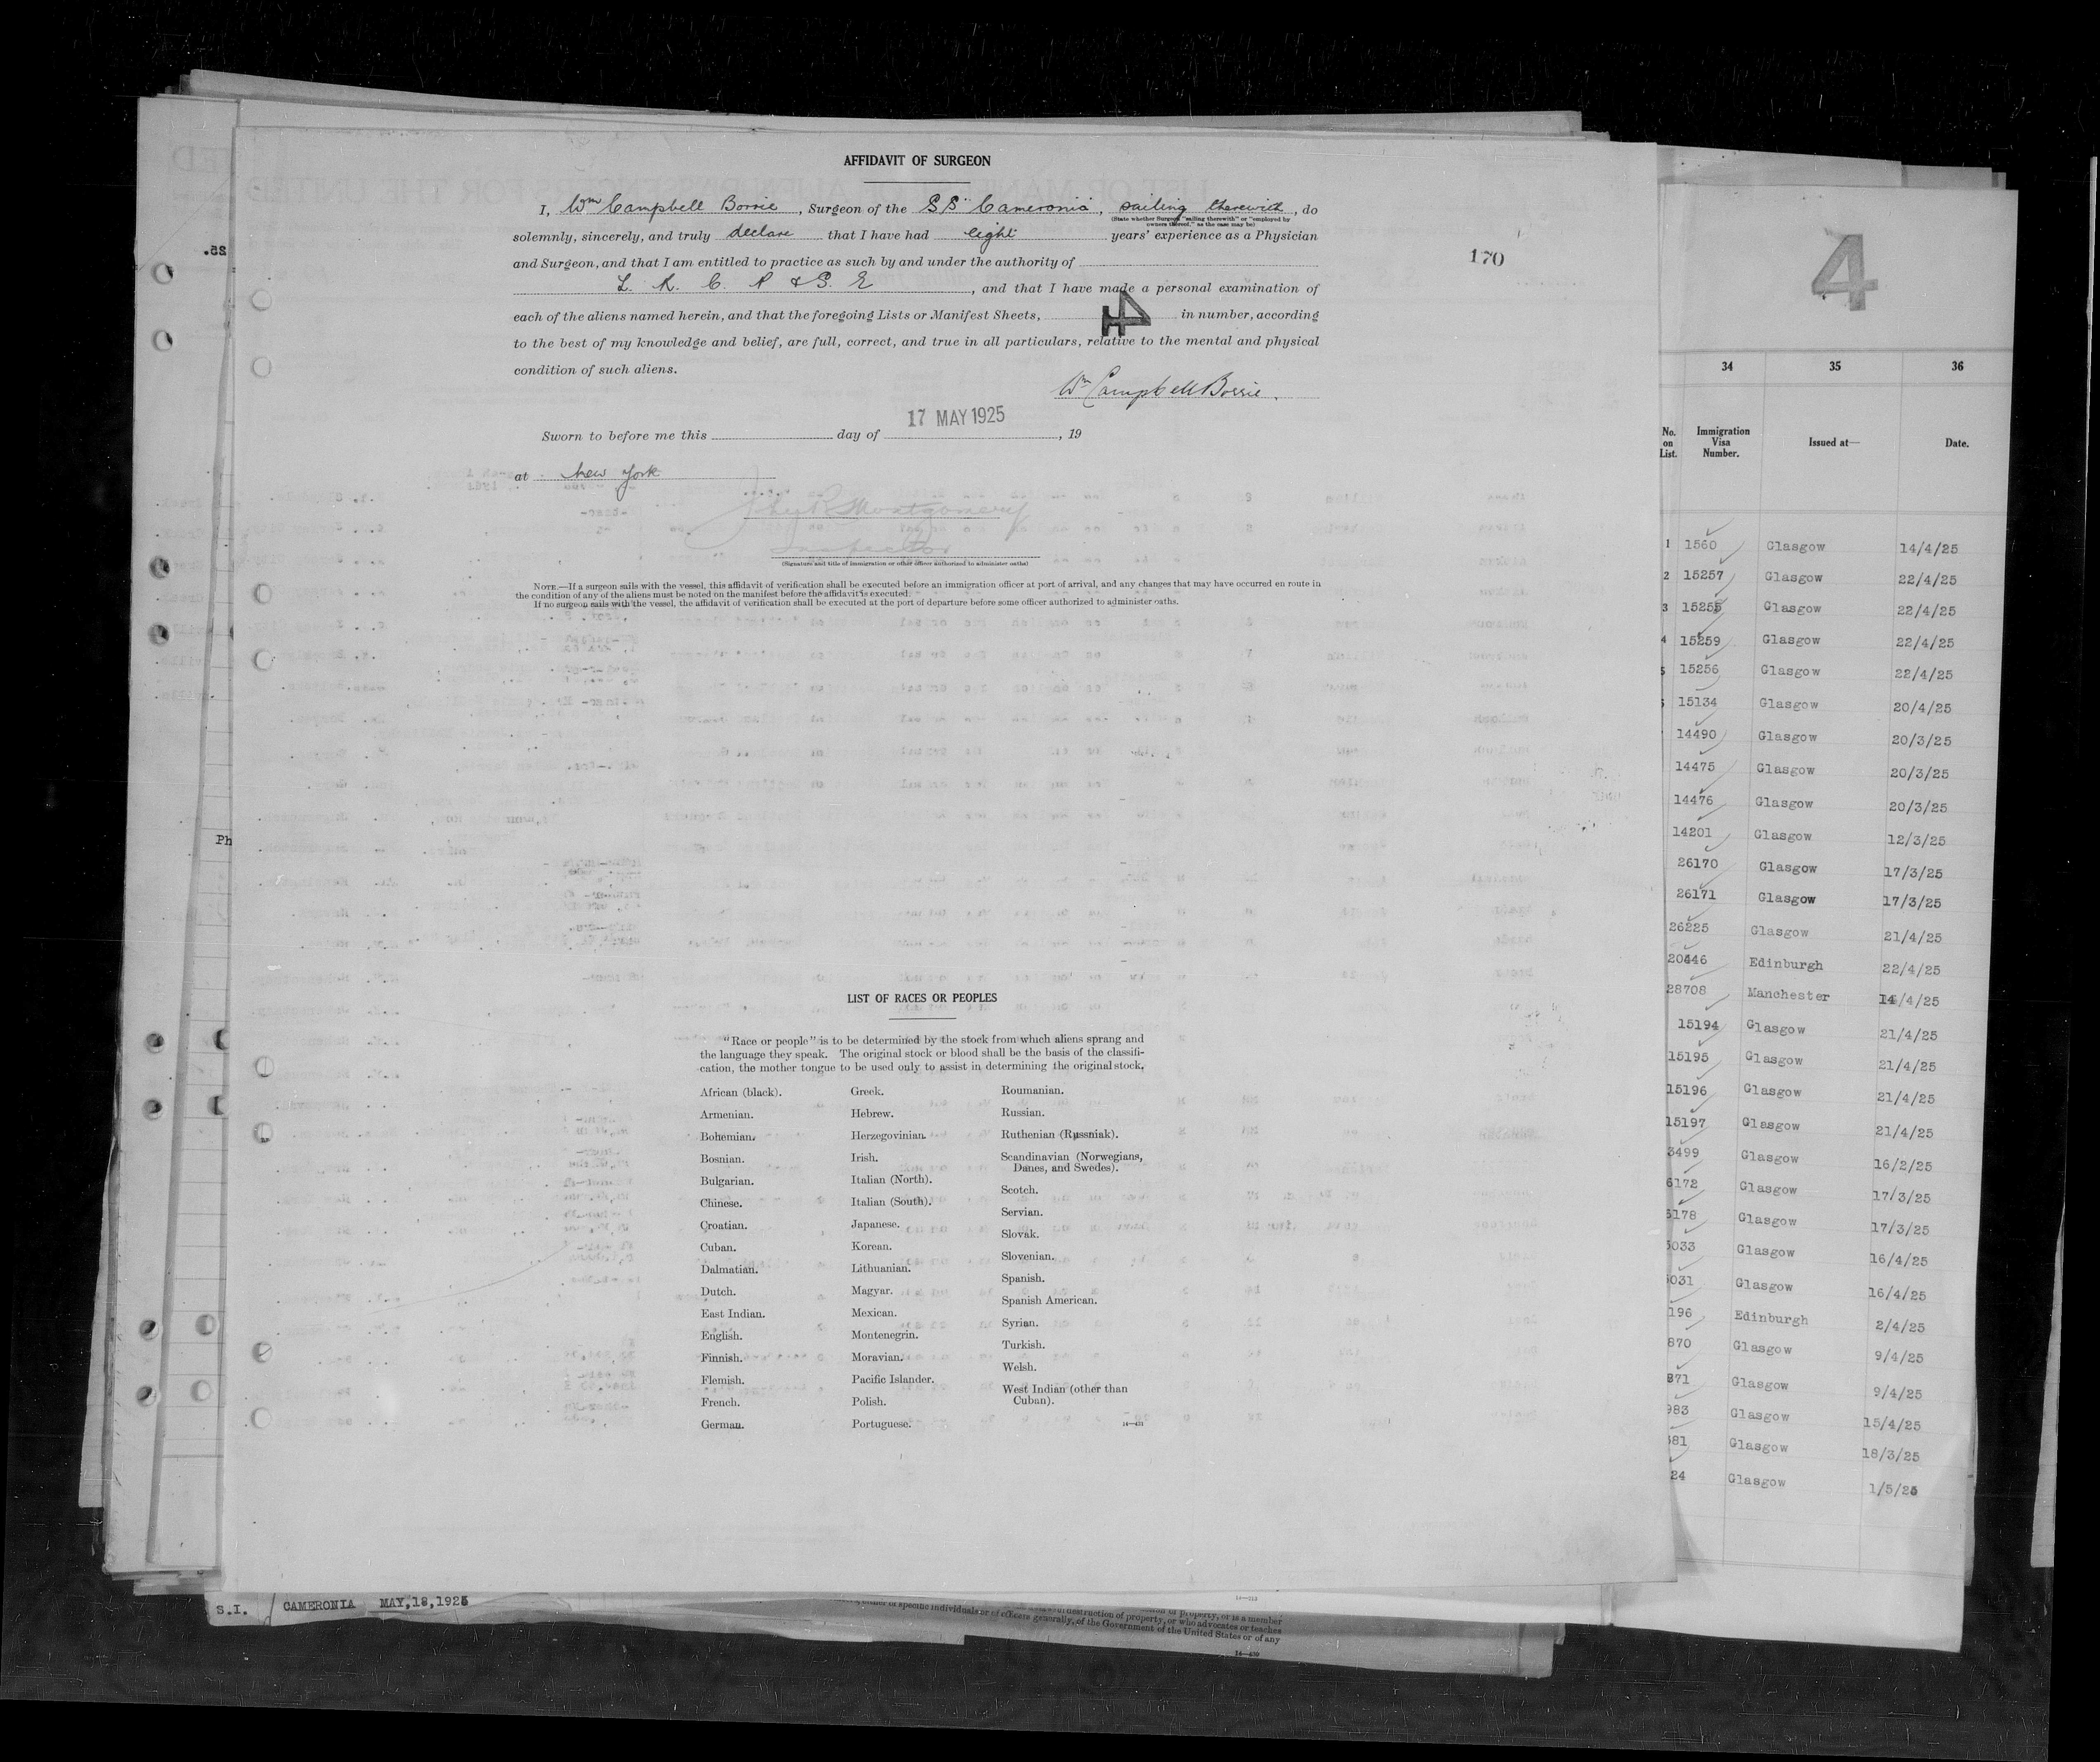 AFFIDAVIT OF SURGEON
I, Wm Campbell Borrie, Surgeon of the SS "Cameronia", sailing therewith, do
(State whether Surgeon "sailing therewith" or "employed by
owners thereof," as the case may be)
solemnly, sincerely, and truly declare that I have had eight years' experience as a Physician
and Surgeon, and that I am entitled to practice as such by and under the authority of
L. R. C. P & S. E, and that I have made a personal examination of
each of the aliens named herein, and that the foregoing Lists or Manifest Sheets, 4 in number, according
to the best of my knowledge and belief, are full, correct, and true in all particulars, relative to the mental and physical
condition of such aliens.
Wm Campbell Borrie.
17 MAY 1925
Sworn to before me this day of , 19
at New York
Montgomery
Inspector
(Signature and title of immigration or other officer authorized to administer oaths)
NOTE.—If a surgeon sails with the vessel, this affidavit of verification shall be executed before an immigration officer at port of arrival, and any changes that may have occurred en route in
the condition of any of the aliens must be noted on the manifest before the affidavit is executed.
If no surgeon sails with the vessel, the affidavit of verification shall be executed at the port of departure before some officer authorized to administer oaths.
170
LIST OF RACES OR PEOPLES
"Race or people" is to be determined by the stock from which aliens sprang and
the language they speak. The original stock or blood shall be the basis of the classifi-
cation, the mother tongue to be used only to assist in determining the original stock.
African (black).
Armenian.
Bohemian.
Bosnian.
Bulgarian.
Chinese.
Croatian.
Cuban.
Dalmatian.
Dutch.
East Indian.
English.
Finnish.
Flemish.
French.
German.
Greek.
Hebrew.
Herzegovinian.
Irish.
Italian (North).
Italian (South).
Japanese.
Korean.
Lithuanian.
Magyar.
Mexican.
Montenegrin.
Moravian.
Pacific Islander.
Polish.
Portuguese.
Roumanian.
Russian.
Ruthenian (Russniak).
Scandinavian (Norwegians,
Danes, and Swedes).
Scotch.
Servian.
Slovak.
Slovenian.
Spanish.
Spanish American.
Syrian.
Turkish.
Welsh.
West Indian (other than
Cuban).
14—431
4
34 35 36
No. on List. Immigration Visa Number. Issued at— Date.
1 1560 Glasgow 14/4/25
2 15257 Glasgow 22/4/25
3 15255 Glasgow 22/4/25
4 15259 Glasgow 22/4/25
5 15256 Glasgow 22/4/25
15134 Glasgow 20/4/25
14490 Glasgow 20/3/25
14475 Glasgow 20/3/25
14476 Glasgow 20/3/25
14201 Glasgow 12/3/25
26170 Glasgow 17/3/25
26171 Glasgow 17/3/25
26225 Glasgow 21/4/25
20446 Edinburgh 22/4/25
28708 Manchester 14/4/25
15194 Glasgow 21/4/25
15195 Glasgow 21/4/25
15196 Glasgow 21/4/25
15197 Glasgow 21/4/25
3499 Glasgow 16/2/25
6172 Glasgow 17/3/25
6178 Glasgow 17/3/25
5033 Glasgow 16/4/25
5031 Glasgow 16/4/25
196 Edinburgh 2/4/25
870 Glasgow 9/4/25
871 Glasgow 9/4/25
983 Glasgow 15/4/25
581 Glasgow 18/3/25
24 Glasgow 1/5/25
Ph
S.I. CAMERONIA MAY,18,1925
14—313
destruction of property, or is a member
of specific individuals or of officers generally, of the Government of the United States or of any
14—430